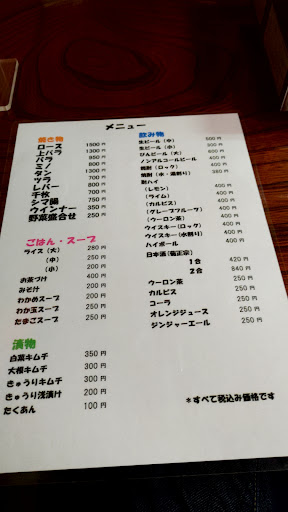 メニュー
焼き物
ロース 1500円
上バラ 1300円
バラ 950円
ミノ 800円
タン 1300円
ツラ 700円
レバー 800円
千枚 750円
シマ腸 750円
ウインナー 350円
野菜盛合せ 250円
ごはん・スープ
ライス (大) 280円
(中) 250円
(小) 200円
お茶づけ 400円
みそ汁 200円
わかめスープ 200円
わか玉スープ 250円
たまごスープ 250円
漬物
白菜キムチ 350円
大根キムチ 300円
きゅうりキムチ 300円
きゅうり浅漬け 200円
たくあん 100円
飲み物
生ビール (中) 500円
生ビール (小) 300円
びんビール (大)
ノンアルコールビール 400円
焼酎 (ロック) 400円
焼酎 (水・湯割り) 350円
酎ハイ
(レモン) 400円
(ライム) 400円
(カルピス) 400円
(グレープフルーツ) 400円
(ウーロン茶) 400円
ウイスキー(ロック) 400円
ウイスキー(水割り) 400円
ハイボール 400円
日本酒(菊正宗)
1合 420円
2合 840円
ウーロン茶 250円
カルピス 250円
コーラ 250円
オレンジジュース 250円
ジンジャーエール 250円
*すべて税込み価格です